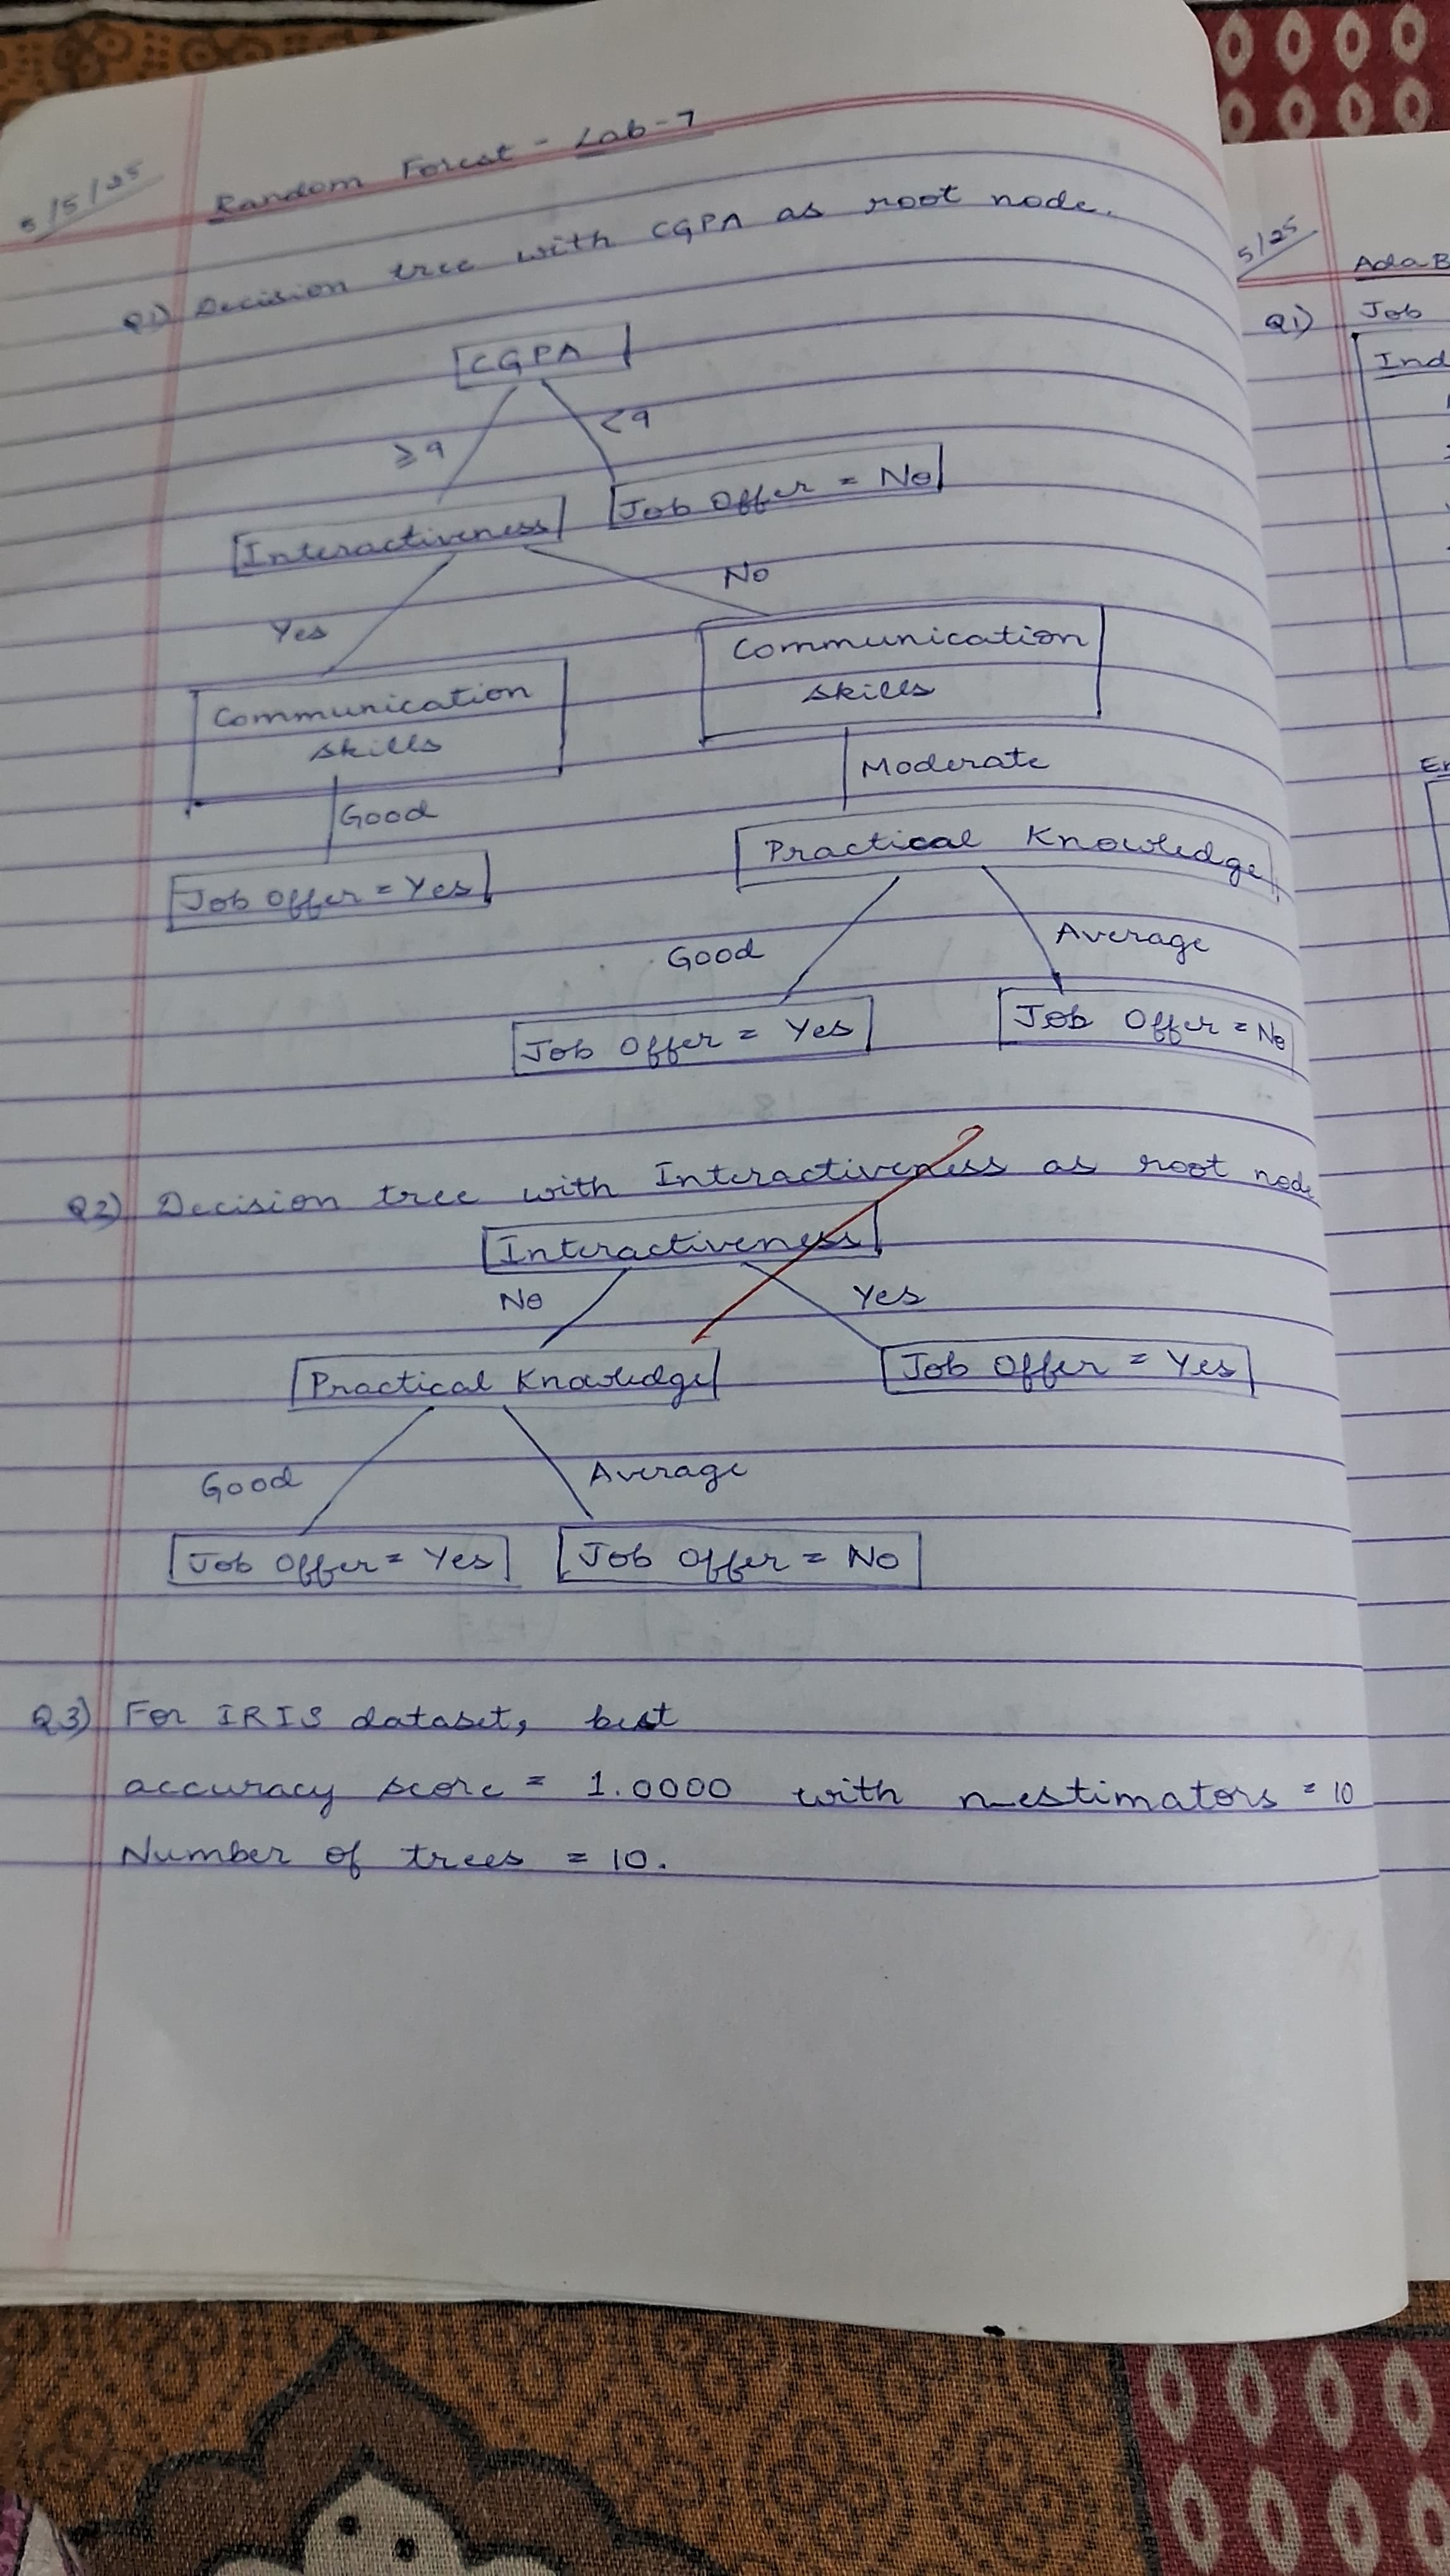 5/5/25
Random Forest - Lab-7
Q1) Decision tree with CGPA as root node.
CGPA
≥9
<9
Interactiveness
Job Offer = No
Yes
No
Communication
skills
Communication
skills
Good
Moderate
Job Offer = Yes
Practical Knowledge
Good
Average
Job Offer = Yes
Job Offer = No
Q2) Decision tree with Interactiveness as root node
Interactiveness
No
Yes
Practical Knowledge
Job Offer = Yes
Good
Average
Job Offer = Yes
Job Offer = No
Q3) For IRIS dataset, best
accuracy score = 1.0000 with n_estimators = 10
Number of trees = 10.
5/25
AdaB
Q1) Job
Ind